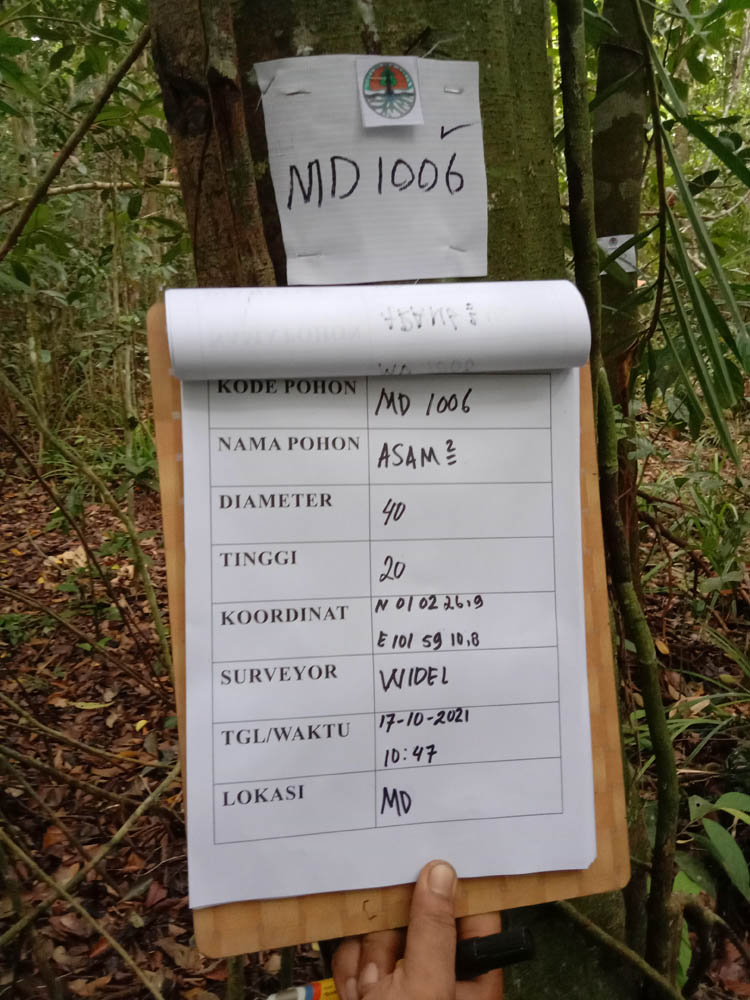 MD 1006
KODE POHON MD 1006
NAMA POHON ASAM 2
DIAMETER 40
TINGGI 20
KOORDINAT N 01 02 26,9
E 101 59 10,8
SURVEYOR WIDEL
TGL/WAKTU 17-10-2021
10:47
LOKASI MD